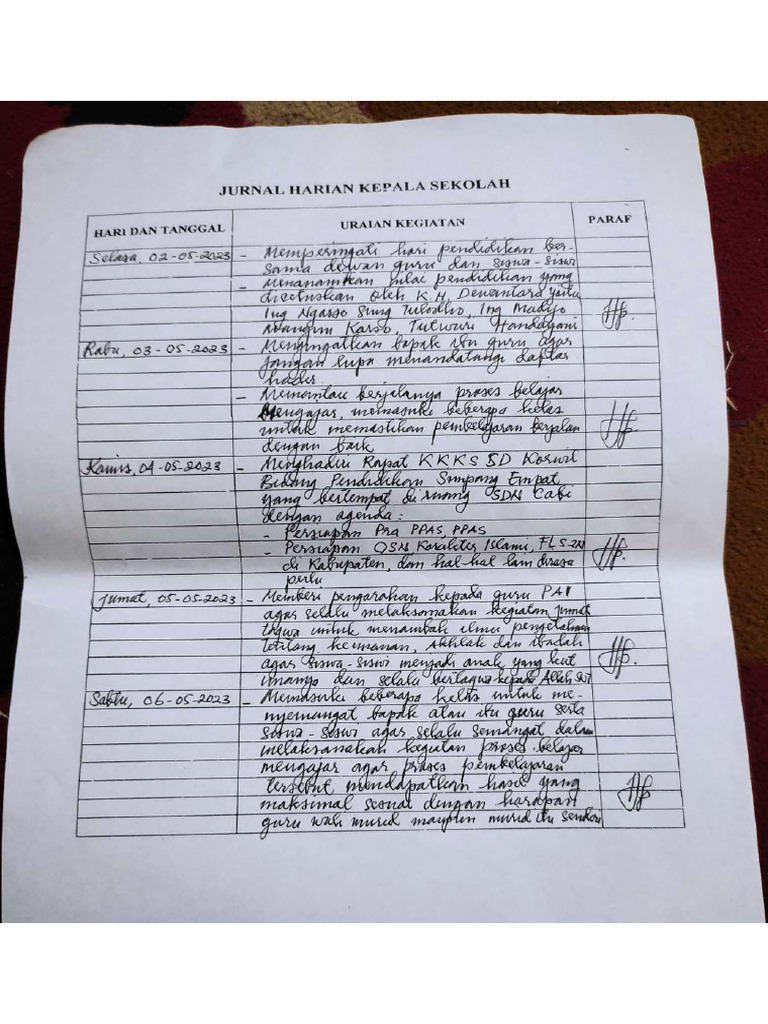 JURNAL HARIAN KEPALA SEKOLAH
HARI DAN TANGGAL URAIAN KEGIATAN PARAF
Selasa, 02-05-2023 - Memperingati hari pendidikan ber-
sama dewan guru dan siswa-siswi
- Menanamkan nilai pendidikan yang
dicetuskan oleh K.H. Dewantara yaitu
Ing Ngarso Sung Tulodho, Ing Madyo
Mangun Karso, Tutwuri Handayani
Rabu, 03-05-2023 - Mengingatkan bapak ibu guru agar
jangan lupa menandatangi daftar
hadir
- Memantau berjalanya proses belajar
Mengajar, memasuki beberapa kelas
untuk memastikan pembelajaran berjalan
dengan baik
Kamis, 04-05-2023 - Menghadiri Rapat KKKS SD Korwil
Bidang Pendidikan Simpang Empat
yang bertempat di ruang SDN Cabi
dengan agenda:
- Persiapan Pra PPAS, PPAS
- Persiapan OSN Karakter Islami, FLS2N
di Kabupaten, dan hal-hal lain dirasa
perlu
Jumat, 05-05-2023 - Memberi pengarahan kepada guru PAI
agar selalu melaksanakan kegiatan jumat
taqwa untuk menambah ilmu pengetahuan
tentang keimanan, akhlak dan ibadah
agar siswa-siswi menjadi anak yang kuat
imannya dan selalu bertaqwa kepada Allah Swt
Sabtu, 06-05-2023 - Memasuki beberapa kelas untuk me-
nyemangat bapak atau ibu guru serta
siswa-siswi agar selalu semangat dalam
melaksanakan kegiatan proses belajar
mengajar agar, proses pembelajaran
tersebut mendapatkan hasil yang
maksimal sesuai dengan harapan
guru wali murid maupun murid itu sendiri